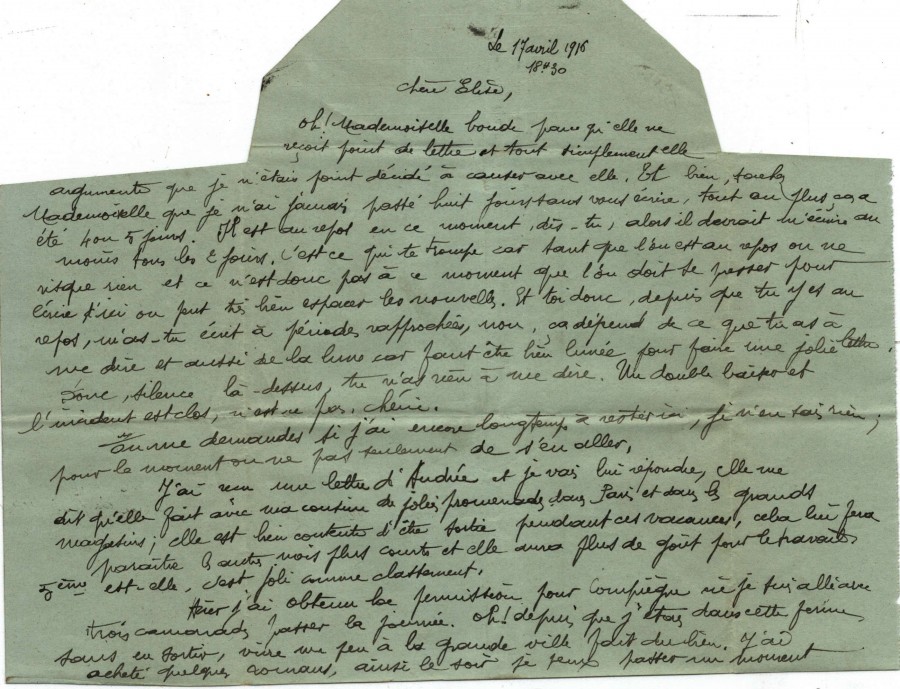 Le 17 avril 1916
18h30
Chère Elise,
Oh! Mademoiselle boude parce qu'elle ne
reçoit point de lettre et tout simplement elle
argumente que je n'étais point décidé à causer avec elle. Et bien, sachez
Mademoiselle que je n'ai jamais passé huit jours sans vous écrire, tout au plus ça a
été 4 ou 5 jours. Il est au repos en ce moment, dis-tu, alors il devrait m'écrire au
moins tous les 2 jours. C'est ce qui te trompe car tant que l'on est au repos on ne
risque rien et ce n'est donc pas à ce moment que l'on doit se presser pour
écrire d'ici on peut très bien espacer les nouvelles. Et toi donc, depuis que tu y es au
repos, m'as-tu écrit à périodes rapprochées, non, ça dépend de ce que tu as à
me dire et aussi de la lune car faut être bien lunée pour faire une jolie lettre.
Donc, silence là-dessus, tu n'as rien à me dire. Un double baiser et
l'incident est clos, n'est-ce pas, chérie.
Tu me demandes si j'ai encore longtemps à rester ici, je n'en sais rien;
pour le moment on ne pas seulement de s'en aller.
J'ai reçu une lettre d'Andrée et je vais lui répondre, elle me
dit qu'elle fait avec ma cousine de jolies promenades dans Paris et dans les grands
magasins; elle est bien contente d'être sortie pendant ces vacances, cela lui fera
paraître les autres mois plus courts et elle aura plus de goût pour le travail.
5ème est-elle, c'est joli comme classement.
Hier j'ai obtenu la permission pour Compiègne où je suis allé avec
trois camarades passer la journée. Oh! depuis que j'étais dans cette ferme
sans en sortir, vivre un peu à la grande ville fait du bien. J'ai
acheté quelques romans, ainsi le soir je peux passer un moment